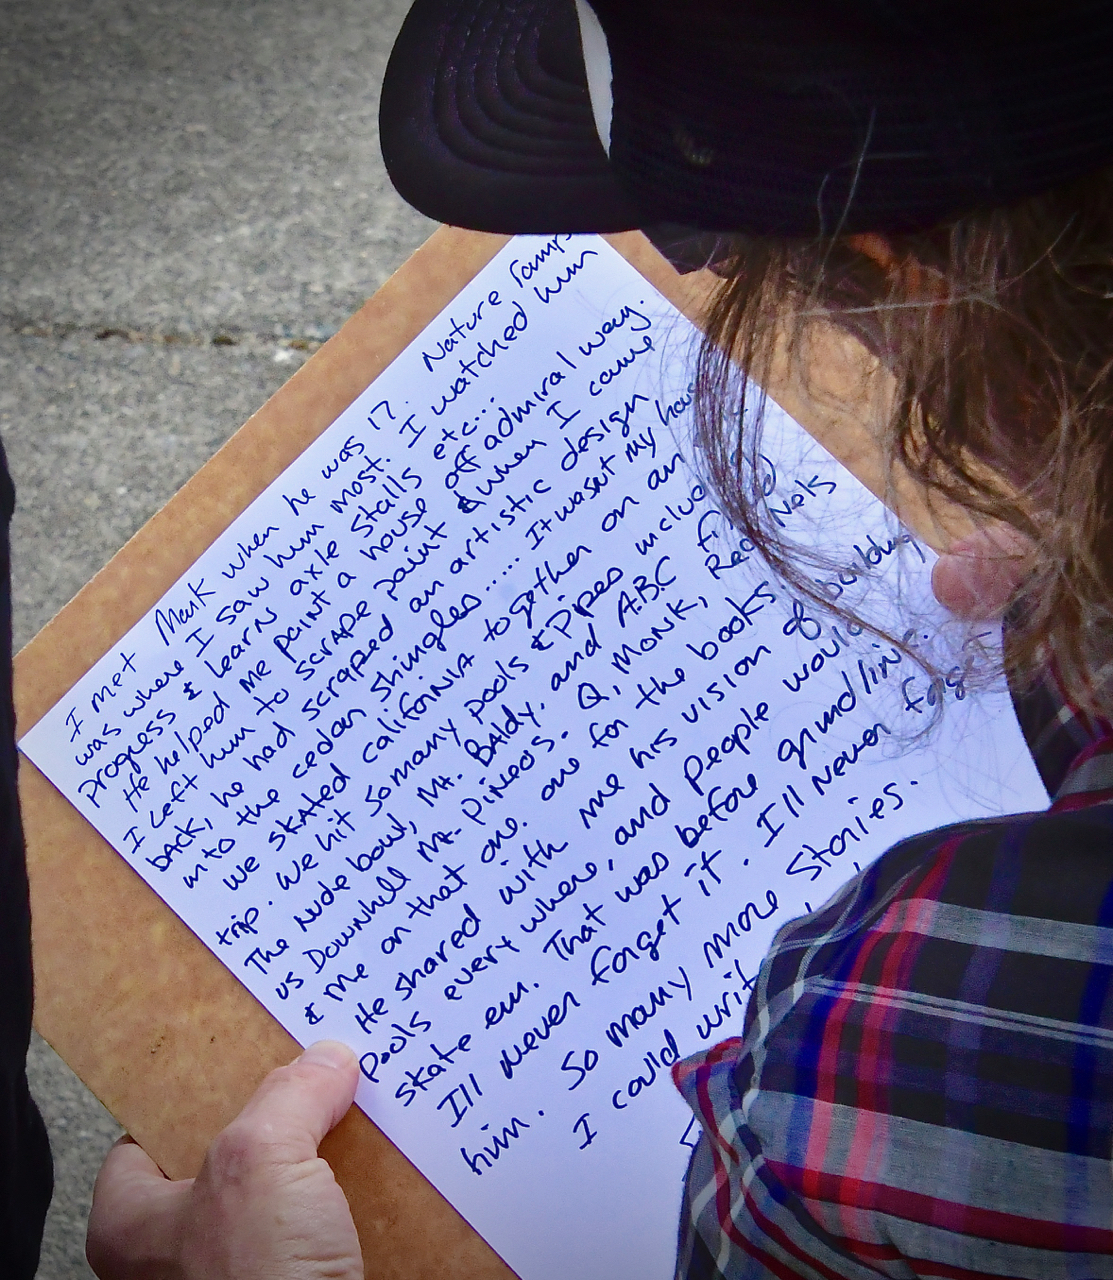 I met Mark when he was 17. Nature ramps
was where I saw him most. I watched him
progress & learn axle stalls etc....
He helped me paint a house off admiral way.
I left him to scrape paint & when I came
back, he had scraped an artistic design
in to the cedar shingles...... It wasnt my hous
we skated california together on an
trip. We hit so many pools & pipes includ
The nude bowl, Mt. Baldy. and A.B.C filmed
us Downhill Mt. Pineos. Q, Monk, Red Nels
& me on that one. one for the books.
He shared with me his vision of building
pools every where, and people would
skate em. That was before grindline.
Ill never forget it. Ill never forget
him. So many more stories.
I could writ